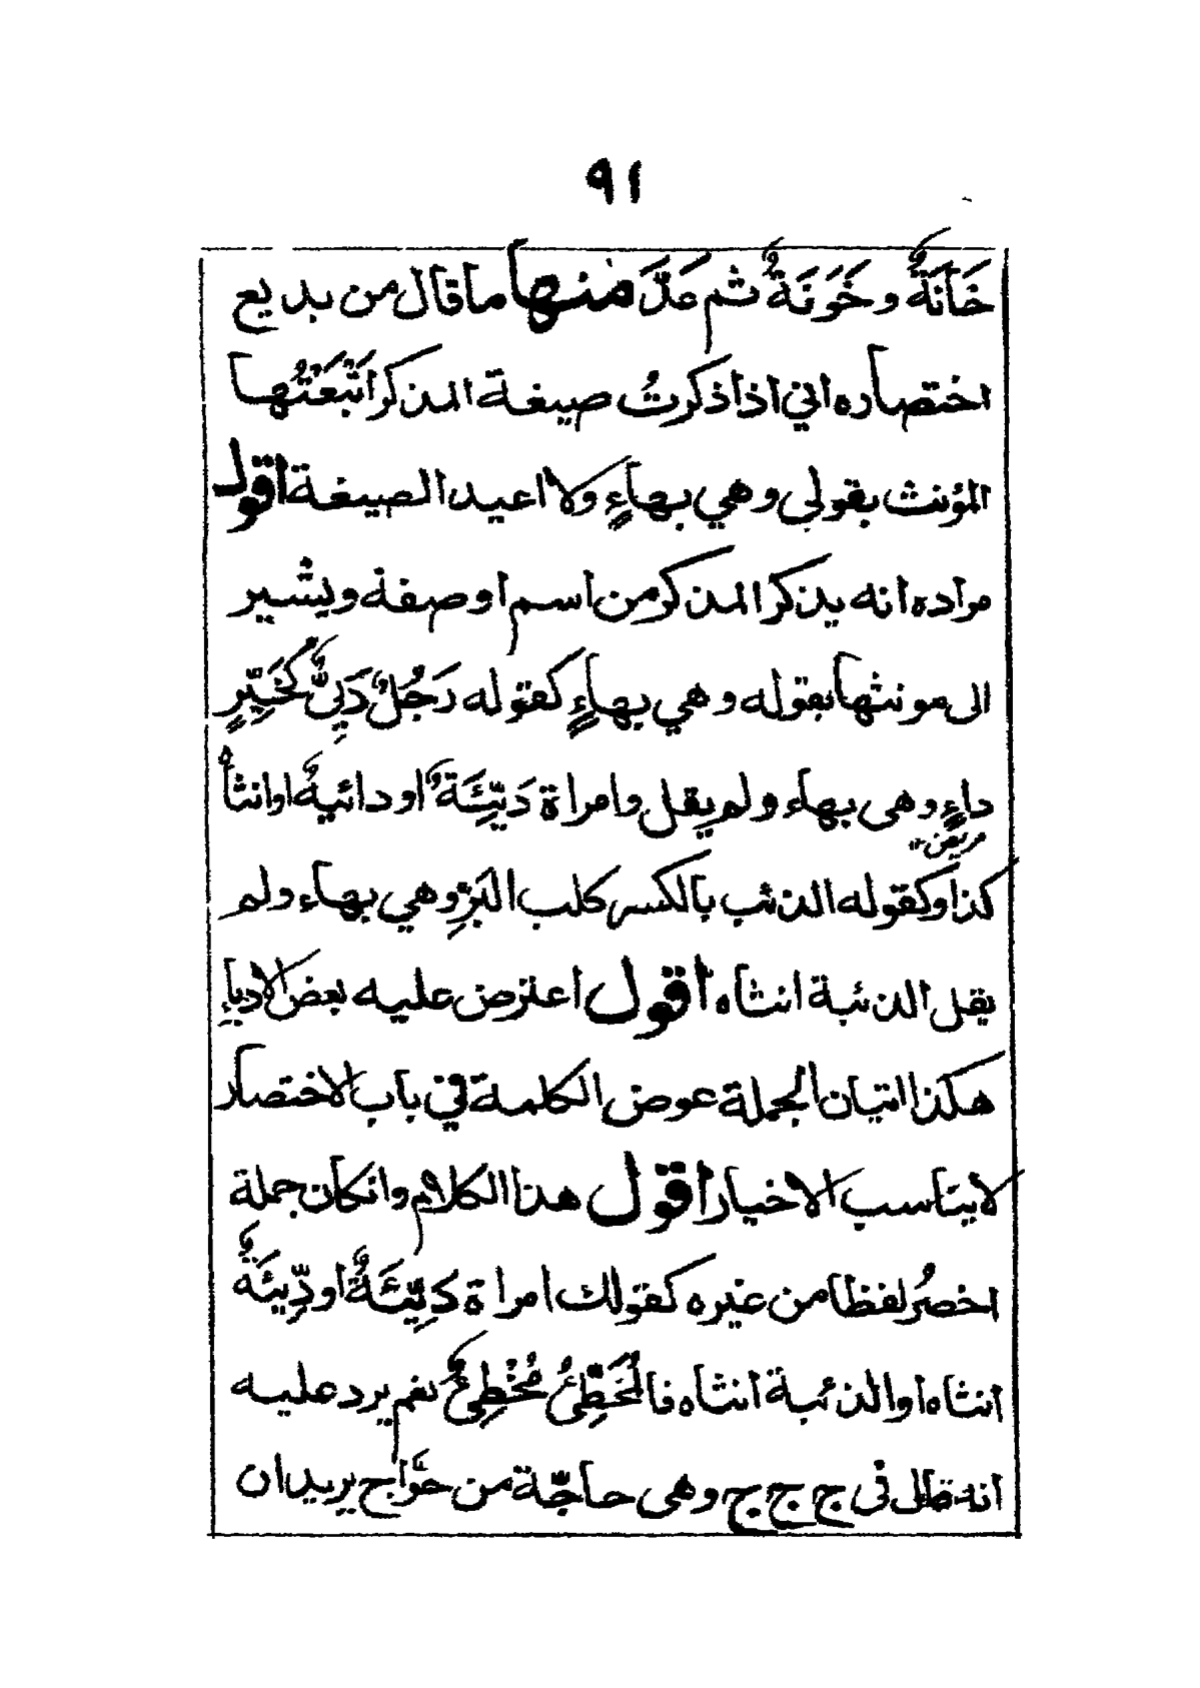 ٩١
خَانَةٌ وخَوَنَةٌ ثم عَدَّ منها ما قال من بديع
اختصاره اني اذا ذكرتُ صيغة المذكر اَتْبَعْتُها
المؤنث بقولى وهي بهاءٍ ولا اعيد الصيغة اقول
مراده انه يذكر المذكر من اسم اوصفة ويشير
الى مونثها بقوله وهي بهاءٍ كقوله رَجُلٌ دَيِئٌ كخَيِّرٍ
داءٍ وهى بهاء ولم يقل وامراة دَيِّئَةٌ او دائيةٌ او انثاهُ
مريض
كذا وكقوله الذئب بالكسر كلب البَرِّ وهي بهاء ولم
يقل الذئبة انثاه اقول اعترض عليه بعض الادباءِ
هكذا اتيان الجملة عوض الكلمة في باب الاختصار
لايناسب الاخيار اقول هذا الكلام وانكان جملة
اخصرُ لفظا من غيره كقولك امراة دَيِّئَةٌ او دِّيئَةٌ
انثاه اوالذئبة انثاه فالمُخَطِّئُ مُخْطِئٌ نعم يرد عليه
انه قال فى ج ج ج وهى حاجّة من حَوَّاج يريد ان